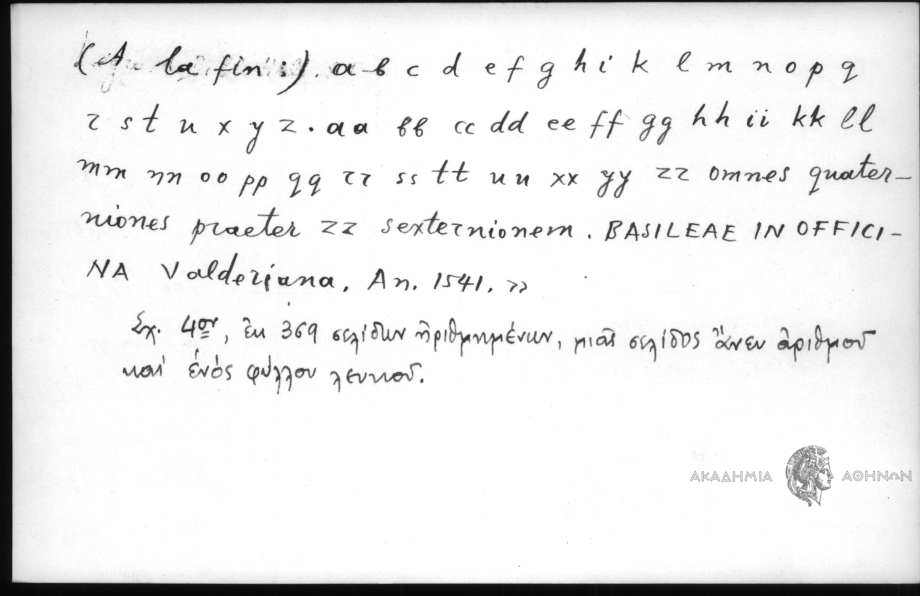 (A la fin :). a b c d e f g h i k l m n o p q
r s t u x y z. aa bb cc dd ee ff gg hh ii kk ll
mm nn oo pp qq rr ss tt uu xx yy zz omnes quater-
niones praeter zz sexternionem. BASILEAE IN OFFICI-
NA Valderiana, An. 1541. »
Σχ. 4ον, ἐκ 369 σελίδων ἠριθμημένων, μιᾶς σελίδος ἄνευ ἀριθμοῦ
καὶ ἑνὸς φύλλου λευκοῦ.
ΑΚΑΔΗΜΙΑ ΑΘΗΝΩΝ